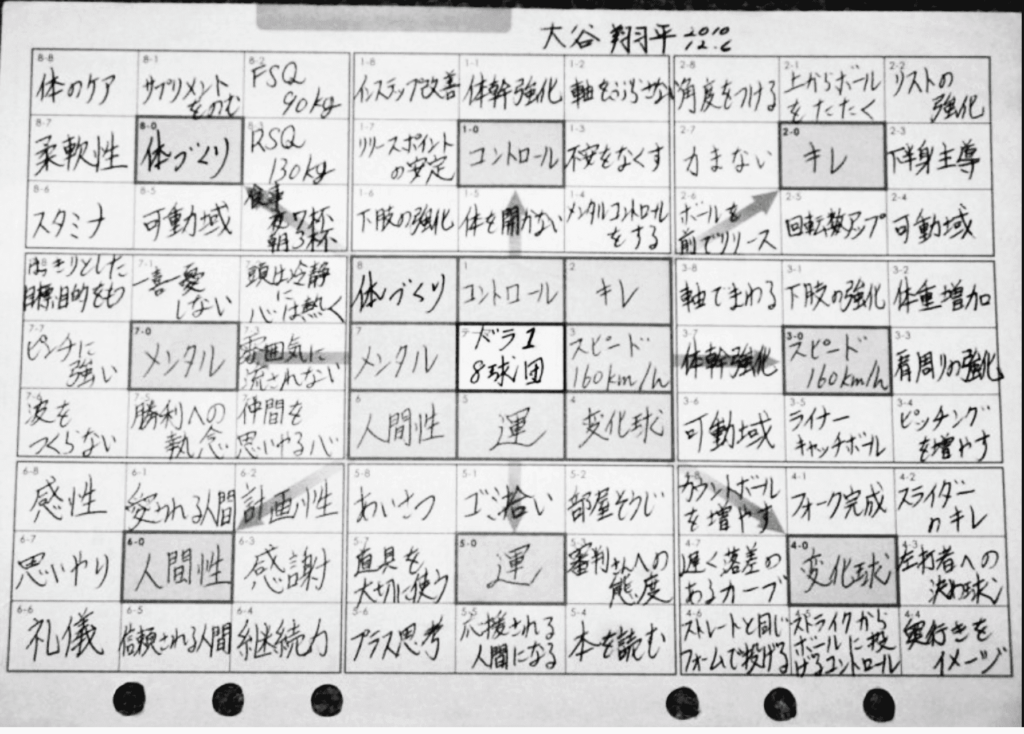 大谷 翔平 2010
12.6
8-8
体のケア
8-1
サプリメント
をのむ
8-2
FSQ
90kg
8-7
柔軟性
8-0
体づくり
8-3
RSQ
130kg
8-6
スタミナ
8-5
可動域
食事
夜7杯
朝3杯
1-8
インステップ改善
1-1
体幹強化
1-2
軸をぶらさない
1-7
リリースポイント
の安定
1-0
コントロール
1-3
不安をなくす
1-6
下肢の強化
1-5
体を開かない
1-4
メンタルコントロール
をする
2-8
角度をつける
2-1
上からボール
をたたく
2-2
リストの
強化
2-7
力まない
2-0
キレ
2-3
下半身主導
2-6
ボールを
前でリリース
2-5
回転数アップ
2-4
可動域
はっきりとした
目標、目的をもつ
7-1
一喜一憂
しない
頭は冷静に
心は熱く
7-7
ピンチに
強い
7-0
メンタル
7-3
雰囲気に
流されない
7-6
波を
つくらない
7-5
勝利への
執念
7-4
仲間を
思いやる心
8
体づくり
1
コントロール
2
キレ
7
メンタル
ドラ1
8球団
3
スピード
160km/h
6
人間性
5
運
4
変化球
3-8
軸でまわる
3-1
下肢の強化
3-2
体重増加
3-7
体幹強化
3-0
スピード
160km/h
3-3
肩周りの強化
3-6
可動域
3-5
ライナー
キャッチボール
3-4
ピッチング
を増やす
6-8
感性
6-1
愛される人間
6-2
計画性
6-7
思いやり
6-0
人間性
6-3
感謝
6-6
礼儀
6-5
信頼される人間
6-4
継続力
5-8
あいさつ
5-1
ゴミ拾い
5-2
部屋そうじ
5-7
道具を
大切に使う
5-0
運
5-3
審判さんへの
態度
5-6
プラス思考
5-5
応援される
人間になる
5-4
本を読む
4-8
カウントボール
を増やす
4-1
フォーク完成
4-2
スライダー
のキレ
4-7
遅く落差の
あるカーブ
4-0
変化球
4-3
左打者への
決め球
4-6
ストレートと同じ
フォームで投げる
4-5
ストライクから
ボールに投
げるコントロール
4-4
奥行きを
イメージ